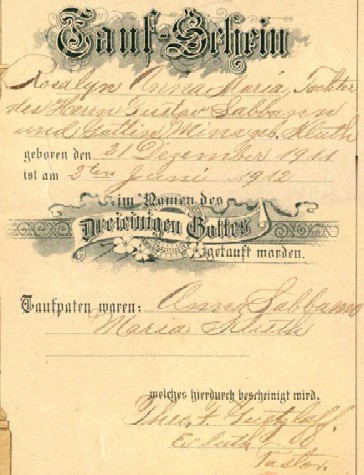 Tauf-Schein
Rosalyn Anna Maria, Tochter
des Herrn Gustav Sabbann
und Gattin Mina geb. Kluth
geboren den 21 Dezember 1911
ist am 2ten Juni 1912
im Namen des
Dreieinigen Gottes
getauft worden.
Taufpaten waren: Anna Sabbann
Maria Kluth
welches hierdurch bescheinigt wird.
Theo. F.
Ev. luth.
Pastor.